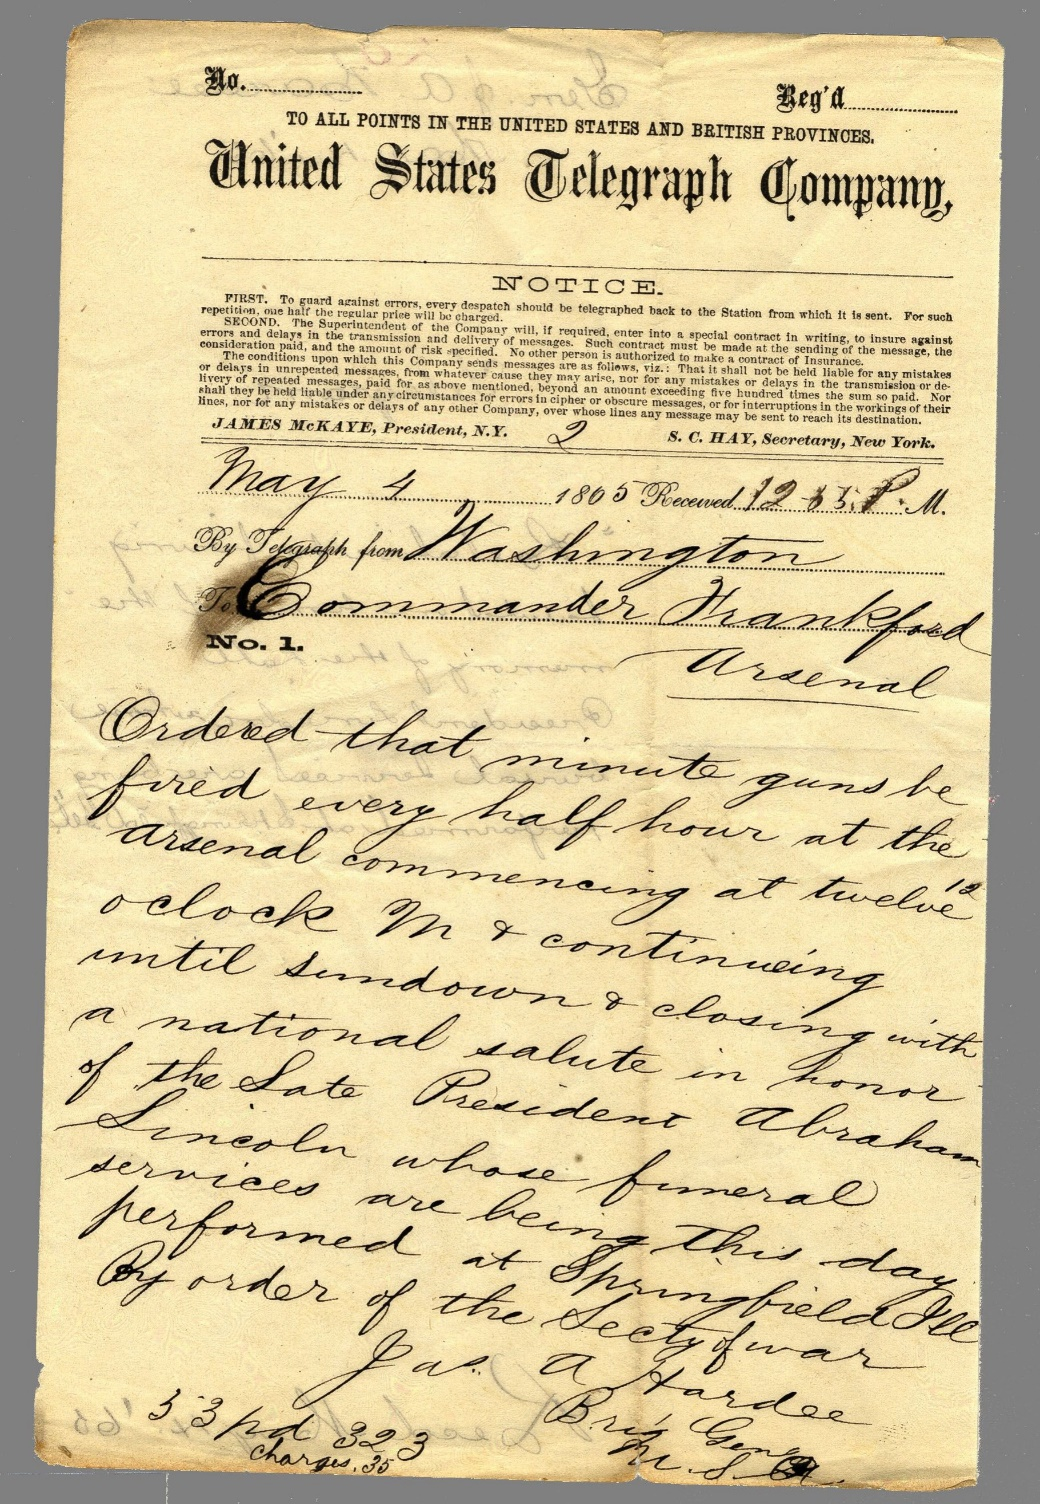 No.
Reg'd
TO ALL POINTS IN THE UNITED STATES AND BRITISH PROVINCES.
United States Telegraph Company,
NOTICE.
FIRST. To guard against errors, every despatch should be telegraphed back to the Station from which it is sent. For such
repetition, one half the regular price will be charged.
SECOND. The Superintendent of the Company will, if required, enter into a special contract in writing, to insure against
errors and delays in the transmission and delivery of messages. Such contract must be made at the sending of the message, the
consideration paid, and the amount of risk specified. No other person is authorized to make a contract of Insurance.
The conditions upon which this Company sends messages are as follows, viz.: That it shall not be held liable for any mistakes
or delays in unrepeated messages, from whatever cause they may arise, nor for any mistakes or delays in the transmission or de-
livery of repeated messages, paid for as above mentioned, beyond an amount exceeding five hundred times the sum so paid. Nor
shall they be held liable under any circumstances for errors in cipher or obscure messages, or for interruptions in the workings of their
lines, nor for any mistakes or delays of any other Company, over whose lines any message may be sent to reach its destination.
JAMES McKAYE, President, N.Y. 2 S. C. HAY, Secretary, New York.
May 4 1865 Received 12 P. M.
By Telegraph from Washington
To Commander Frankford
No. 1.
Arsenal
Ordered that minute guns be
fired every half hour at the
arsenal commencing at twelve 12
oclock M & continueing
until sundown & closing with
a national salute in honor
of the Late President Abraham
Lincoln whose funeral
services are being this day
performed at Springfield Ill
By order of the Secty of war
Jas. A Hardee
Brig Genl
U. S. A.
53 pd 323
charges. 35